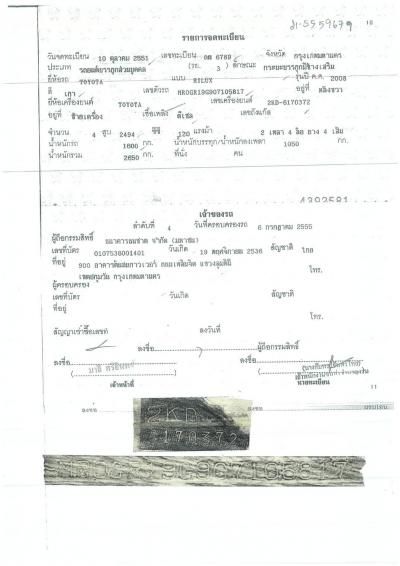 16
รายการจดทะเบียน
วันจดทะเบียน 10 ตุลาคม 2551 เลขทะเบียน 6789 จังหวัด กรุงเทพมหานคร
ประเภท รถยนต์บรรทุกส่วนบุคคล (รย. 3 ) ลักษณะ
ยี่ห้อรถ TOYOTA แบบ HILUX รุ่นปี ค.ศ. 2008
สี เทา เลขตัวรถ MROGR19G907105817 อยู่ที่
ยี่ห้อเครื่องยนต์ TOYOTA เลขเครื่องยนต์ 2KD-6170372
อยู่ที่ เชื้อเพลิง ดีเซล เลขถังแก๊ส
จำนวน 4 สูบ 2494 ซีซี 120 แรงม้า 2 เพลา 4 ล้อ ยาง 4 เส้น
น้ำหนักรถ 1600 กก. น้ำหนักบรรทุก/น้ำหนักลงเพลา 1050 กก.
น้ำหนักรวม 2650 กก. ที่นั่ง คน
เจ้าของรถ
ลำดับที่ 4 วันที่ครอบครองรถ 6 กรกฎาคม 2555
ผู้ถือกรรมสิทธิ์ ธนาคารธนชาต จำกัด (มหาชน)
เลขที่บัตร 0107536001401 วันเกิด 19 พฤศจิกายน 2536 สัญชาติ ไทย
ที่อยู่ 900 อาคารต้นสนทาวเวอร์ ถนนเพลินจิต แขวงลุมพินี
เขตปทุมวัน กรุงเทพมหานคร โทร.
ผู้ครอบครอง
เลขที่บัตร วันเกิด สัญชาติ
ที่อยู่
โทร.
สัญญาเช่าซื้อเลขที่ ลงวันที่
ลงชื่อ ผู้ถือกรรมสิทธิ์
ลงชื่อ ลงชื่อ
เจ้าหน้าที่ นายทะเบียน
11
2KD
6170372